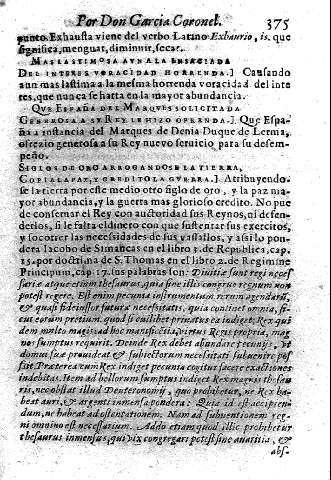 Por Don Garcia Coronel. 375
punto. Exhausta viene del verbo Latino Exhaurio, is. que
significa, menguat, diminuir, secar.
MAS LASTIMOSA AVN A LA ENSACIADA
DEL INTERES VORACIDAD HORRENDA.] Causando
aun mas lastima a la mesma horrenda voracidad del inte
res, que nunca se harta en la mayor abundancia.
QVE ESPAÑA DEL MARQVES SOLICITADA
GENEROSA A SV REY LE HIZO OFRENDA.] Que Espa-
ña a instancia del Marques de Denia Duque de Lerma,
ofrezio generosa a su Rey nuevo servicio para su desem-
peño.
SIGLOS DE ORO ARROGANDOSE LA TIERRA,
COPIA LA PAZ, Y CREDITO LA GVERRA.] Attribuyendo-
se la tierra por este medio otro siglo de oro, y la paz ma
yor abundancia, y la guerra mas glorioso credito. No pue
de conseruar el Rey con auctoridad sus Reynos, ni defen-
derlos, si le falta el dinero con que sustentar sus exercitos,
y socorrer las necesidades de sus vassallos, y assi lo pon-
dera Iacobo de Simancas en el libro 3. de Republica, cap.
15. por doctrina de S. Thomas en el libro 2. de Regimine
Principum, cap. 17. sus palabras son: Diuitiæ sunt regi neces
sariæ atque etiam thesaurus, quia sine illis congruè regnum non
potest regere. Est enim pecunia instrumentum rerum agendarū,
& quasi fideiussor futuræ necessitatis, quia continet omnia, si-
cut eorum pretium. quod si cuilibet priuato ea indiget Rex qui
dem multo magis: ad hoc mansictitia, virtus Regis propria, mag
nos sumptus requirit. Deinde Rex debet abundare pecunijs, vt
domui suæ prouideat & subiectorum necessitati subuenire pos
sit. Præterea cum Rex indiget pecunia cogitur facere exactiones
indebitas. Item ad bellorum sumptus indiget Rex magnis thesau
ris, nec obstat illud Deuteronomij, quo prohibetur, ne Rex ha-
beat auri, & argenti inmensa pondera: Quia id est accipien-
dum, ne habeat ad ostentationem. Nam ad subuentionem reg-
ni omnino est necessarium. Addo etiam quod illic prohibetur
thesaurus inmensus, qui vix congregari potest sine auaritia, &
abs-